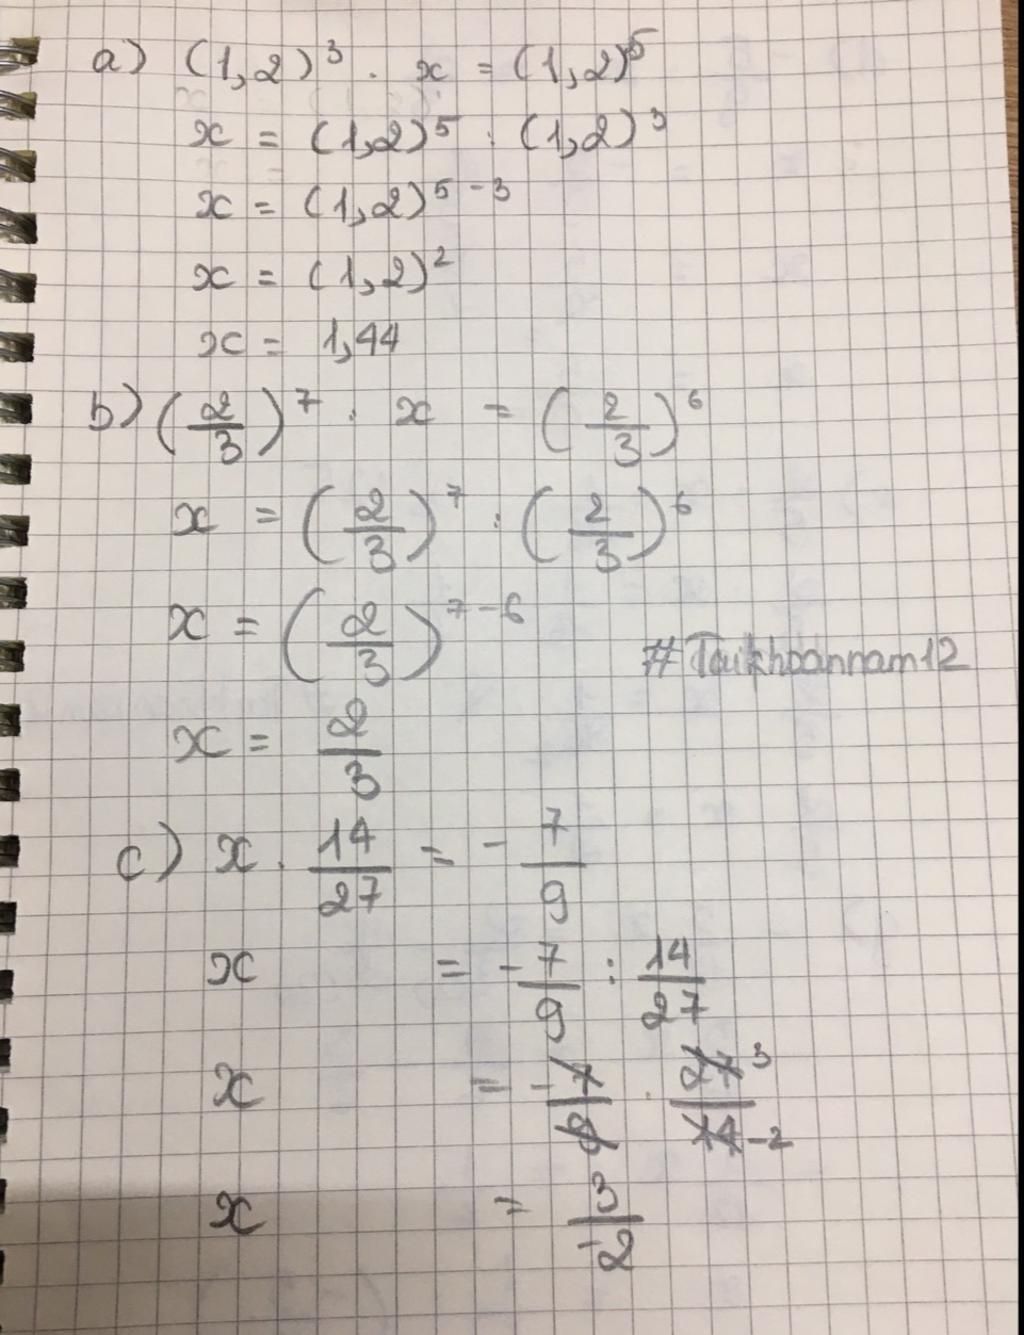 a) (1,2)³ . x = (1,2)⁵
x = (1,2)⁵ : (1,2)³
x = (1,2)⁵⁻³
x = (1,2)²
x = 1,44
b) (2/3)⁷ : x = (2/3)⁶
x = (2/3)⁷ : (2/3)⁶
x = (2/3)⁷⁻⁶
#Taikhoannam12
x = 2/3
c) x . 14/27 = - 7/9
x = - 7/9 : 14/27
x = -7/9 . 27/14 3 -2
x = 3/-2